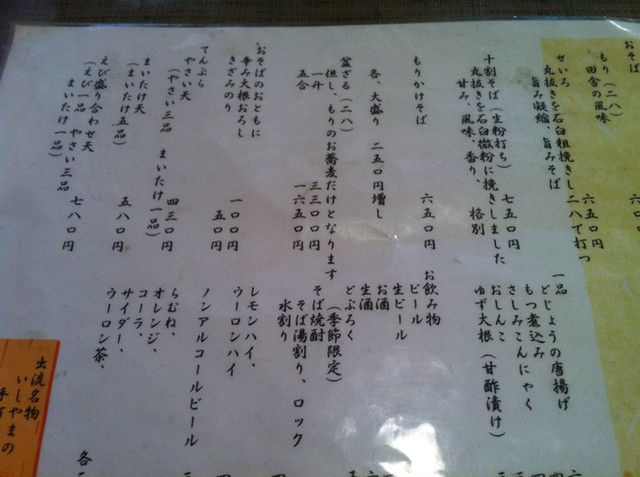 おそば
もり（二八）
田舎の風味
六五〇円
せいろ
丸抜きを石臼粗挽きし二八で打つ
旨み凝縮、旨みそば
七五〇円
十割そば（生粉打ち）
丸抜きを石臼微粉に挽きしました
甘み、風味、香り、格別
もりかけそば
六五〇円
各、大盛り 二五〇円増し
盆ざる（二八）
但し、もりのお蕎麦だけとなります
一升 三三〇〇円
五合 一六五〇円
おそばのおともに
辛み大根おろし 一〇〇円
きざみのり 五〇円
てんぷら
やさい天 四三〇円
（やさい三品 まいたけ一品）
まいたけ天 五八〇円
（まいたけ五品）
えび盛り合わせ天 七八〇円
（えび一品 やさい三品
まいたけ一品）
一品
どじょうの唐揚げ
もつ煮込み
さしみこんにゃく
おしんこ
ゆず大根（甘酢漬け）
お飲み物
ビール
生ビール
お酒
生酒
どぶろく
（季節限定）
そば焼酎
そば湯割り、ロック
水割り
レモンハイ、
ウーロンハイ
ノンアルコールビール
らむね、
オレンジ、
コーラ、
サイダー、
ウーロン茶、
各
出流名物
いしやまの
手打